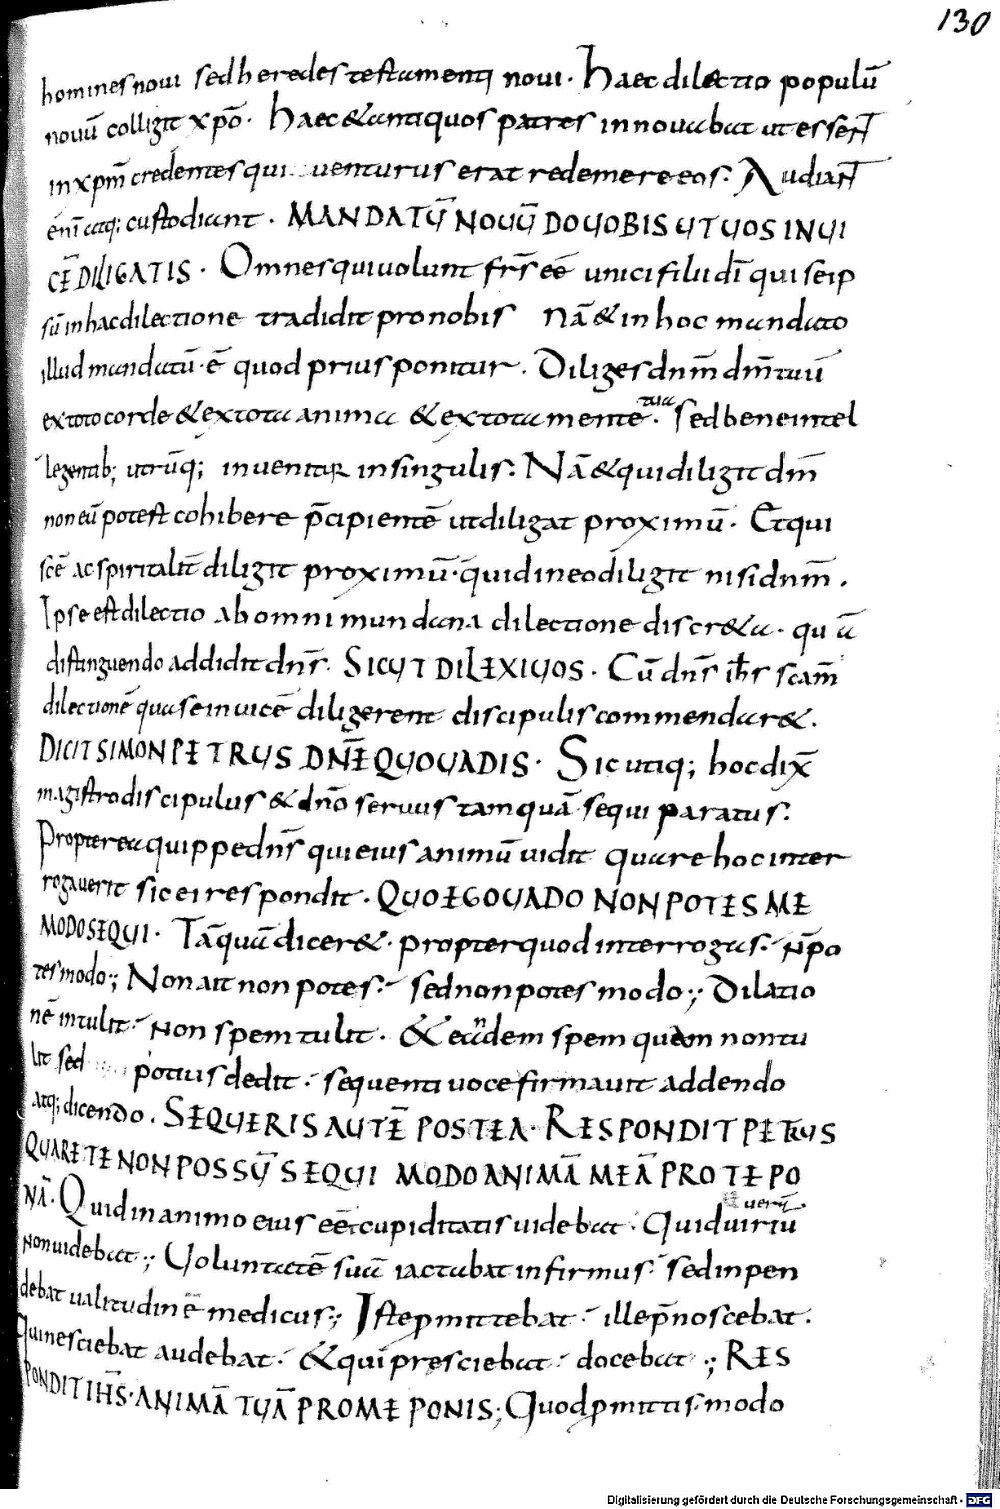 130
homines novi sed heredes testamenti novi · Haec dilectio populū
novū colligit xpō · Haec & antiquos patres innovabat ut essent
in xpm̄ credentes qui venturus erat redemere eos : Audiant
enī atq; custodiant · MANDATŪ NOUŪ DO UOBIS UT UOS INUI
CĒ DILIGATIS · Omnes qui volunt frs̄ eē unici filii dī qui seip
sū in hac dilectione tradidit pro nobis Nā & in hoc mandato
illud mandatū · ē quod prius ponitur · Diliges dnm̄ dm̄ tuū
ex toto corde & ex tota anima & ex tota mente tua · sed bene intel
legentib; utrūq; invenitur in singulis : Nā & qui diligit dm̄
non eū potest cohibere p̄cipientē ut diligat proximū · Et qui
scē ac spiritalit̄ diligit proximū · quid in eo diligit nisi dnm̄ .
Ipse est dilectio ab omni mundana dilectione discr&a · quā
distinguendo addidit dns̄ · SICUT DILEXI UOS · Cū dns̄ ihs̄ scam̄
dilectionē qua se invicē diligerent discipulis commendar& .
DICIT SIMON PETRUS DNĒ QUO UADIS · Sic utiq; hoc dix̄
magistro discipulus & dnō servus tamquā sequi paratus :
Propterea quippe dns̄ qui eius animū vidit quare hoc inter
rogaverit sic ei respondit · QUO EGO UADO NON POTES ME
MODO SEQUI · Tāquā dicer& · propter quod interrogas : ñ po
tes modo ; Non ait non potes : sed non potes modo ; Dilatio
nē intulit : non spem tulit · & eandem spem quem non tu
lit sed potius dedit : sequenti voce firmavit addendo
atq; dicendo . SEQUERIS AUTĒ POSTEA · RESPONDIT PETRUS
QUARE TE NON POSSŪ SEQUI MODO ANIMĀ MEĀ PRO TE PO
NĀ · Quid in animo eius eēt cupiditatis videbat · Quid viriū
non videbat ; Voluntatē suā iactabat infirmus : sed inpen
debat valitudinē medicus ; Iste p mittebat : ille p̄noscebat .
Qui nesciebat audebat : & qui presciebat : docebat ; RES
PONDIT IHS̄ · ANIMĀ TUĀ PRO ME PONIS ; Quod p mittis modo
Digitalisierung gefördert durch die Deutsche Forschungsgemeinschaft - DFG